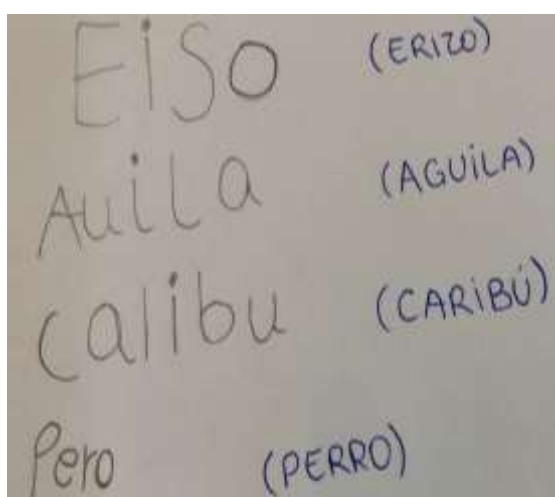 EiSo (ERIZO)
AuiLa (AGUiLA)
Calibu (CARiBÚ)
Pero (PERRO)